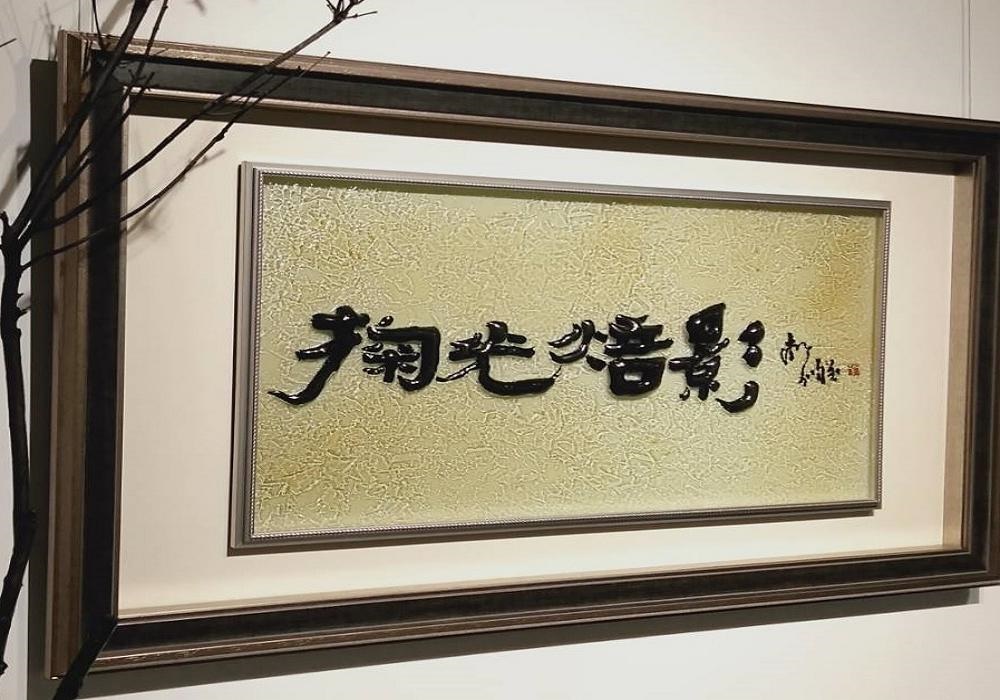 掬光焙影